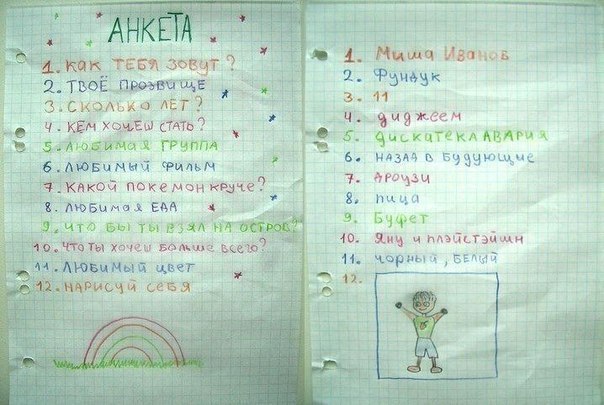 АНКЕТА
1. КАК ТЕБЯ ЗОВУТ?
2. ТВОЁ ПРОЗВИЩЕ
3. СКОЛЬКО ЛЕТ?
4. КЕМ ХОЧЕШ СТАТЬ?
5. ЛЮБИМАЯ ГРУППА
6. ЛЮБИМЫЙ ФИЛЬМ
7. КАКОЙ ПОКЕМОН КРУЧЕ?
8. ЛЮБИМАЯ ЕДА
9. ЧТО БЫ ТЫ ВЗЯЛ НА ОСТРОВ?
10. ЧТО ТЫ ХОЧЕШ БОЛЬШЕ ВСЕГО?
11. ЛЮБИМЫЙ ЦВЕТ
12. НАРИСУЙ СЕБЯ
1. Миша Иванов
2. Фундук
3. 11
4. диджеем
5. ДИСКАТЕКА АВАРИЯ
6. НАЗАД В БУДУЮЩИЕ
7. ДРОУЗИ
8. пица
9. Буфет
10. Яну и плэйстэйшн
11. чорный, БЕЛЫЙ
12.